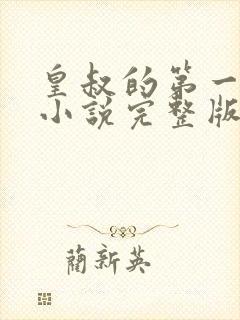 皇叔的第一
小說完整版
蘭新英